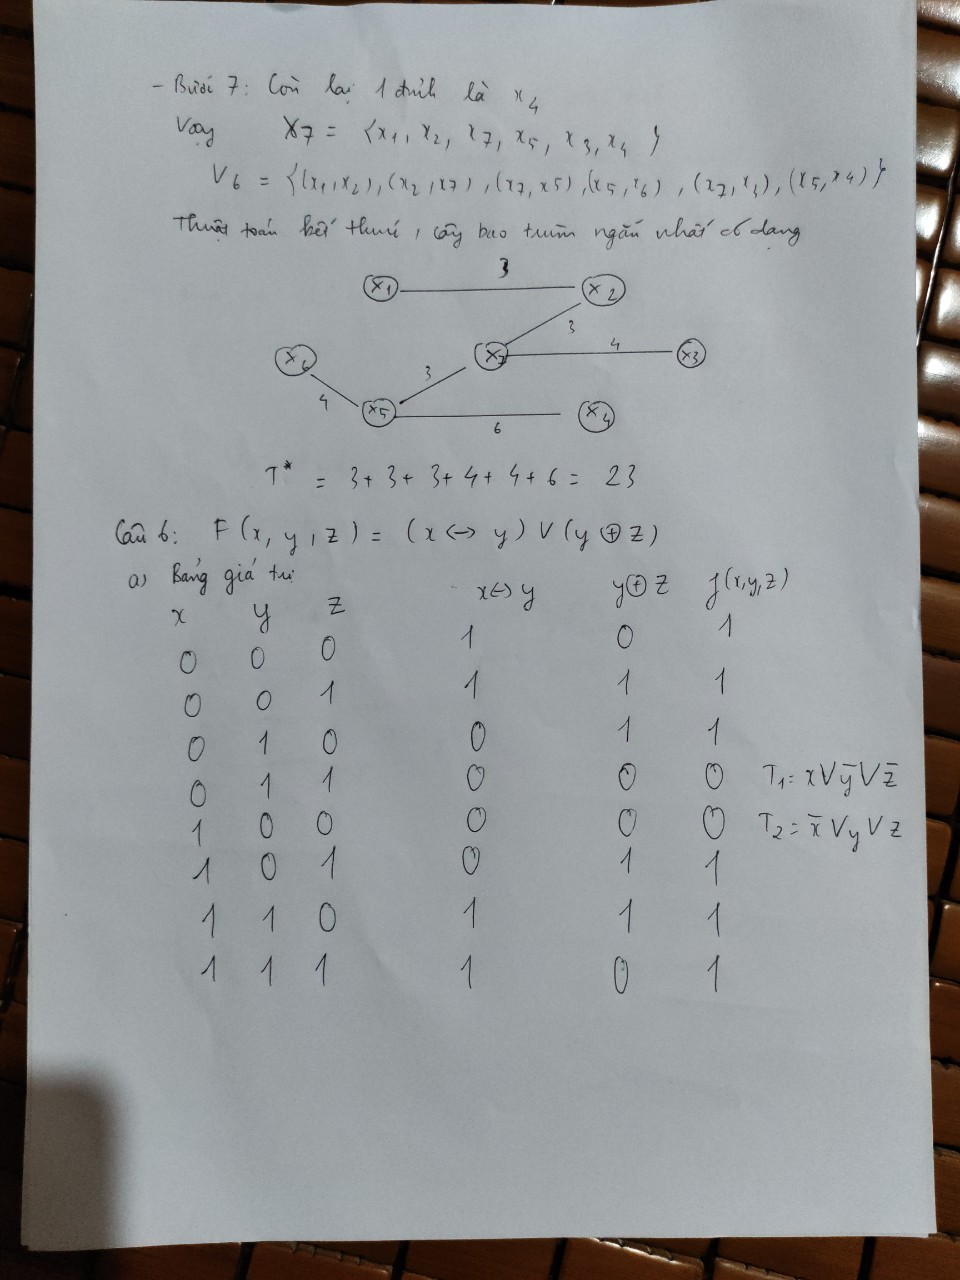 - Bước 7: Còn lại 1 đỉnh là x4
Vậy X7 = {x1, x2, x7, x5, x3, x4}
V6 = {(x1,x2), (x2,x7), (x7,x5), (x5,x6), (x7,x3), (x5,x4)}
Thuật toán kết thúc, cây bao trùm ngắn nhất có dạng
3
x1 x2
3
x6 x7 4 x3
4 3
x5 6 x4
T* = 3+3+3+4+4+6 = 23
Câu 6: F(x, y, z) = (x ↔ y) V (y ⊕ z)
a) Bảng giá trị
x y z x↔y y⊕z f(x,y,z)
0 0 0 1 0 1
0 0 1 1 1 1
0 1 0 0 1 1
0 1 1 0 0 0 T1 = x V ȳ V z̄
1 0 0 0 0 0 T2 = x̄ V y V z
1 0 1 0 1 1
1 1 0 1 1 1
1 1 1 1 0 1